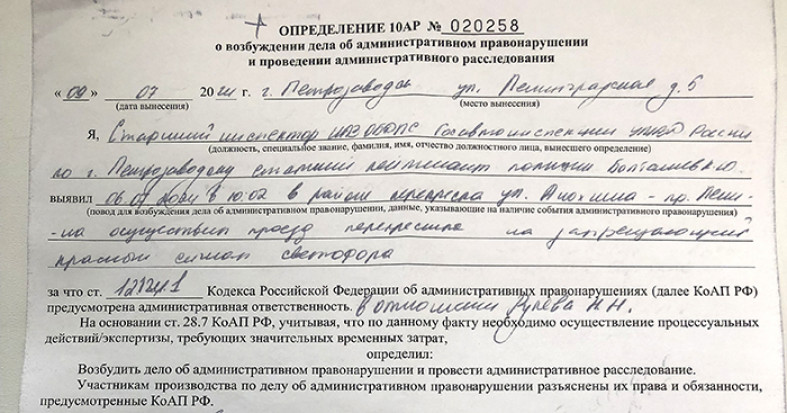 ОПРЕДЕЛЕНИЕ 10АР № 020258
о возбуждении дела об административном правонарушении
и проведении административного расследования
« 09 » 07 2024 г. г. Петрозаводск ул. Ленинградская д.5
(дата вынесения) (место вынесения)
Я, Старший инспектор ИАЗ ОБДПС Госавтоинспекции УМВД России
(должность, специальное звание, фамилия, имя, отчество должностного лица, вынесшего определение)
по г. Петрозаводску старший лейтенант полиции
выявил 06.07.2024 в 10:02 в районе перекрестка ул. Анохина - пр. Лени-
(повод для возбуждения дела об административном правонарушении, данные, указывающие на наличие события административного правонарушения)
-на осуществил проезд перекрестка на запрещающий
красный сигнал светофора
за что ст. 12.12ч.1 Кодекса Российской Федерации об административных правонарушениях (далее КоАП РФ)
предусмотрена административная ответственность. в отношении Н.Н.
На основании ст. 28.7 КоАП РФ, учитывая, что по данному факту необходимо осуществление процессуальных
действий/экспертизы, требующих значительных временных затрат,
определил:
Возбудить дело об административном правонарушении и провести административное расследование.
Участникам производства по делу об административном правонарушении разъяснены их права и обязанности,
предусмотренные КоАП РФ.